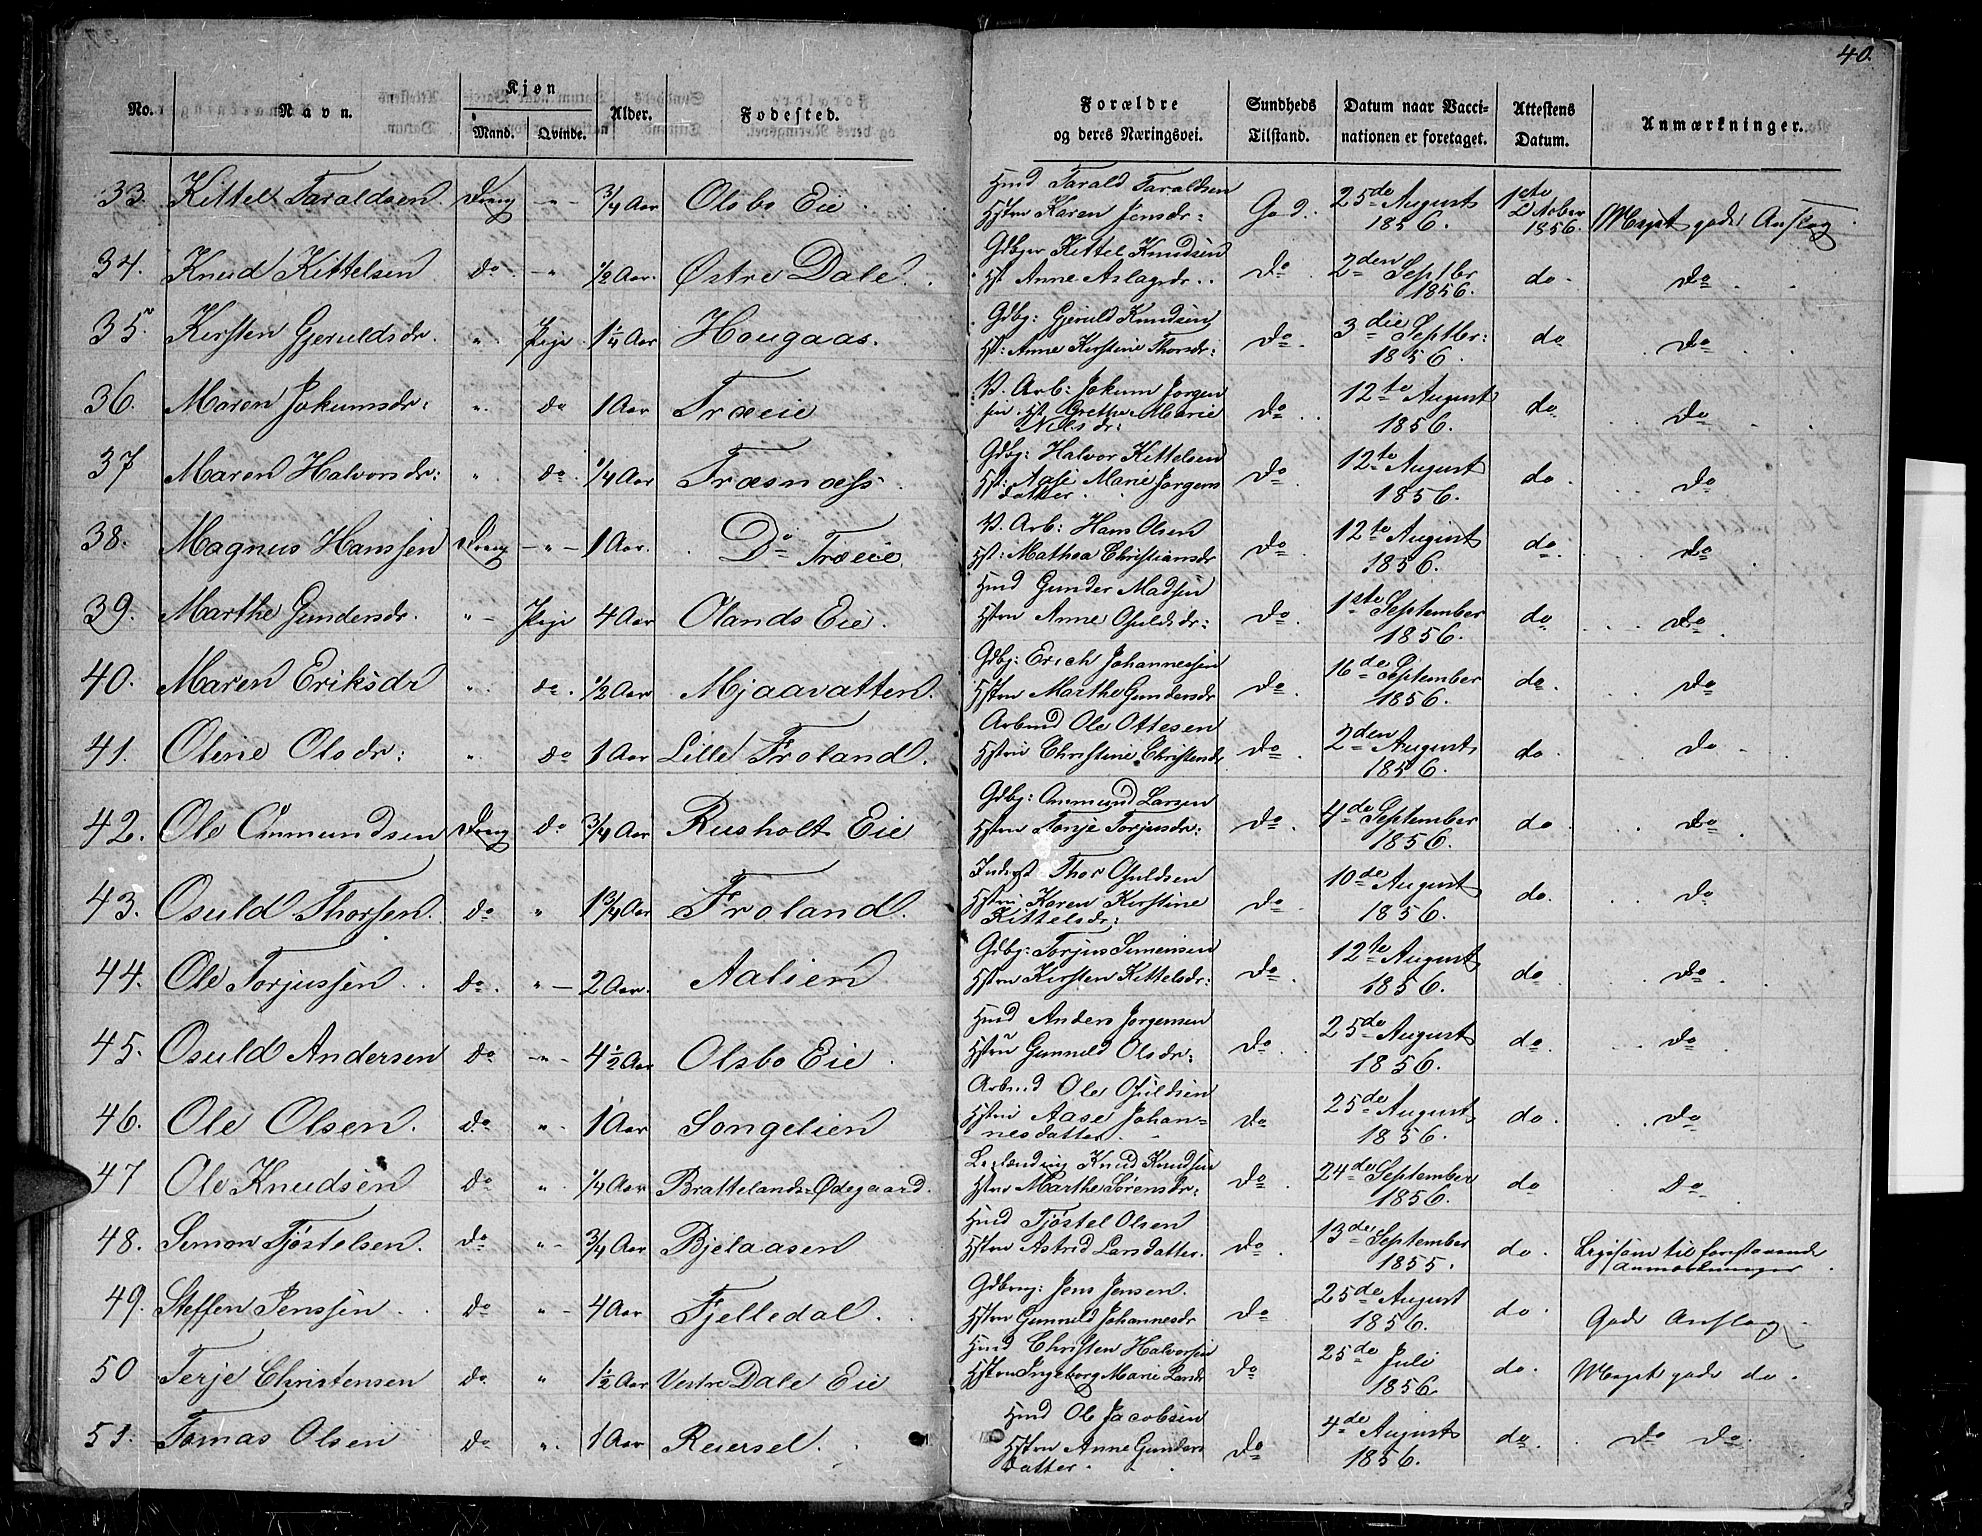 40.
No. Navn. Kjøn Mand. Qvinde. Alder. Fødested. Forældre og deres Næringsvei. Sundheds Tilstand. Datum naar Vaccinationen er foretaget. Attestens Datum. Anmærkninger.
33. Kittel Taraldsen Dreng -"- 3/4 Aar Olsbo Eie. Hmd Tarald Taraldsen
Hstru Karen Jensdr: God. 25de August 1856. 1ste Octbr 1856. Meget gode Anslag
34. Knud Kittelsen do -" 1/2 Aar. Østre Dale. Gdbgr Kittel Knudsen
Hst Anne Aslagsdr. Do 2den Septbr 1856. do Do
35. Kirsten Gjeruldsdr. " Pige 1 1/4 Aar Hougaas. Gdbg: Gjeruld Knudsen
Hst: Anne Kirstine Thorsdr: Do 3die Septbr: 1856. do Do
36. Maren Jokumsdr: " do 1 Aar Træeie Arb: Jokum Jørgen
sen Hst Grethe Marie
Nilsdr: Do 12te August 1856. do Do
37 Maren Halvorsdr: " do 1/4 Aar Træsnæss. Gdbg: Halvor Kittelsen
Hst: Aase Marie Jørgens
datter. Do 12te August 1856. do Do
38. Magnus Hanssen Dreng -"- 1 Aar. Do Træeie. Arb: Hans Olsen
Hst: Mathea Christiansdr Do 12te August 1856. do Do
39. Marthe Gundersdr. " Pige 4 Aar Ølands Eie. Hmd Gunder Madsen
Hstru Anne Osuldsdr: Do 1ste September 1856. do Do
40. Maren Eriksdr " do. 1/2 Aar Mjaavatten. Gdbg: Erich Johannessen
Hstru Marthe Gundersdr Do 16de September 1856. do Do
41. Oline Olsdr: " do 1 Aar Lille Froland. Arbmd Ole Ottesen
Hstru Christine Christensdr Do 2den August 1856. do Do
42. Ole Ommundsen Dreng do 3/4 Aar Rusholt Eie Gdbg: Ommund Larsen
Hstru Tonje Torjusdr: Do 4de September 1856. do Do
43. Osuld Thorsen. do " 1 3/4 Aar Froland. Inderst Thor Osuldsen
Hstru Karen Kirstine
Kittelsdr: Do 10de August 1856. do. Do
44. Ole Torjussen do. "- 2 Aar. Aalien Gdbg: Torjus Simensen
Hstru Kirsten Kittelsdr: Do 12te August 1856. do Do
45. Osuld Andersen do -"- 4 1/2 Aar Olsbo Eie. Hmd Anders Jørgensen
Hstru Gunnild Olsdr: Do 25de August 1856. do Do
46. Ole Olsen. do " 1 Aar Songelien Arbmd Ole Osuldsen
Hstru Aase Johan-
nesdatter. Do 25de August 1856. do Do
47 Ole Knudsen do " 1/4 Aar Brattelands Ødegaard. Knud Knudsen
Hstru Marthe Sørensdr: Do 24de September 1856. do Do
48. Simon Tjøstelsen. do "- 3/4 Aar Bjelaasen Hmd Tjøstel Olsen
Hstru Astrid Larsdatter. Do 13de September 1855. do. Ligesom til forestaaende
Anmærkninger
49. Steffen Jenssen do "- 4 Aar Fjelledal. Gdbrug: Jens Jensen.
Hstru Gunnild Johannesdr Do 25de August 1856. do. Gode Anslag
50 Terje Christensen do " 1 1/2 Aar Vestre Dale Eie Hmd Christen Halvorsen
Hstru Ingeborg Marie Larsdr Do 25de Juli 1856. do. Meget gode do.
51. Tomas Olsen do " 1 Aar Reiersel. Hmd Ole Jacobsen
Hstru Anne Gunders
datter. Do 4de August 1856. do Do Do